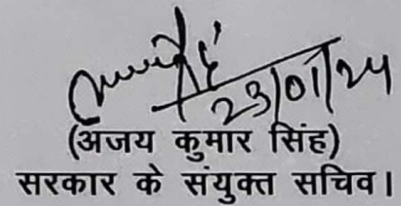 23/01/24
(अजय कुमार सिंह)
सरकार के संयुक्त सचिव।